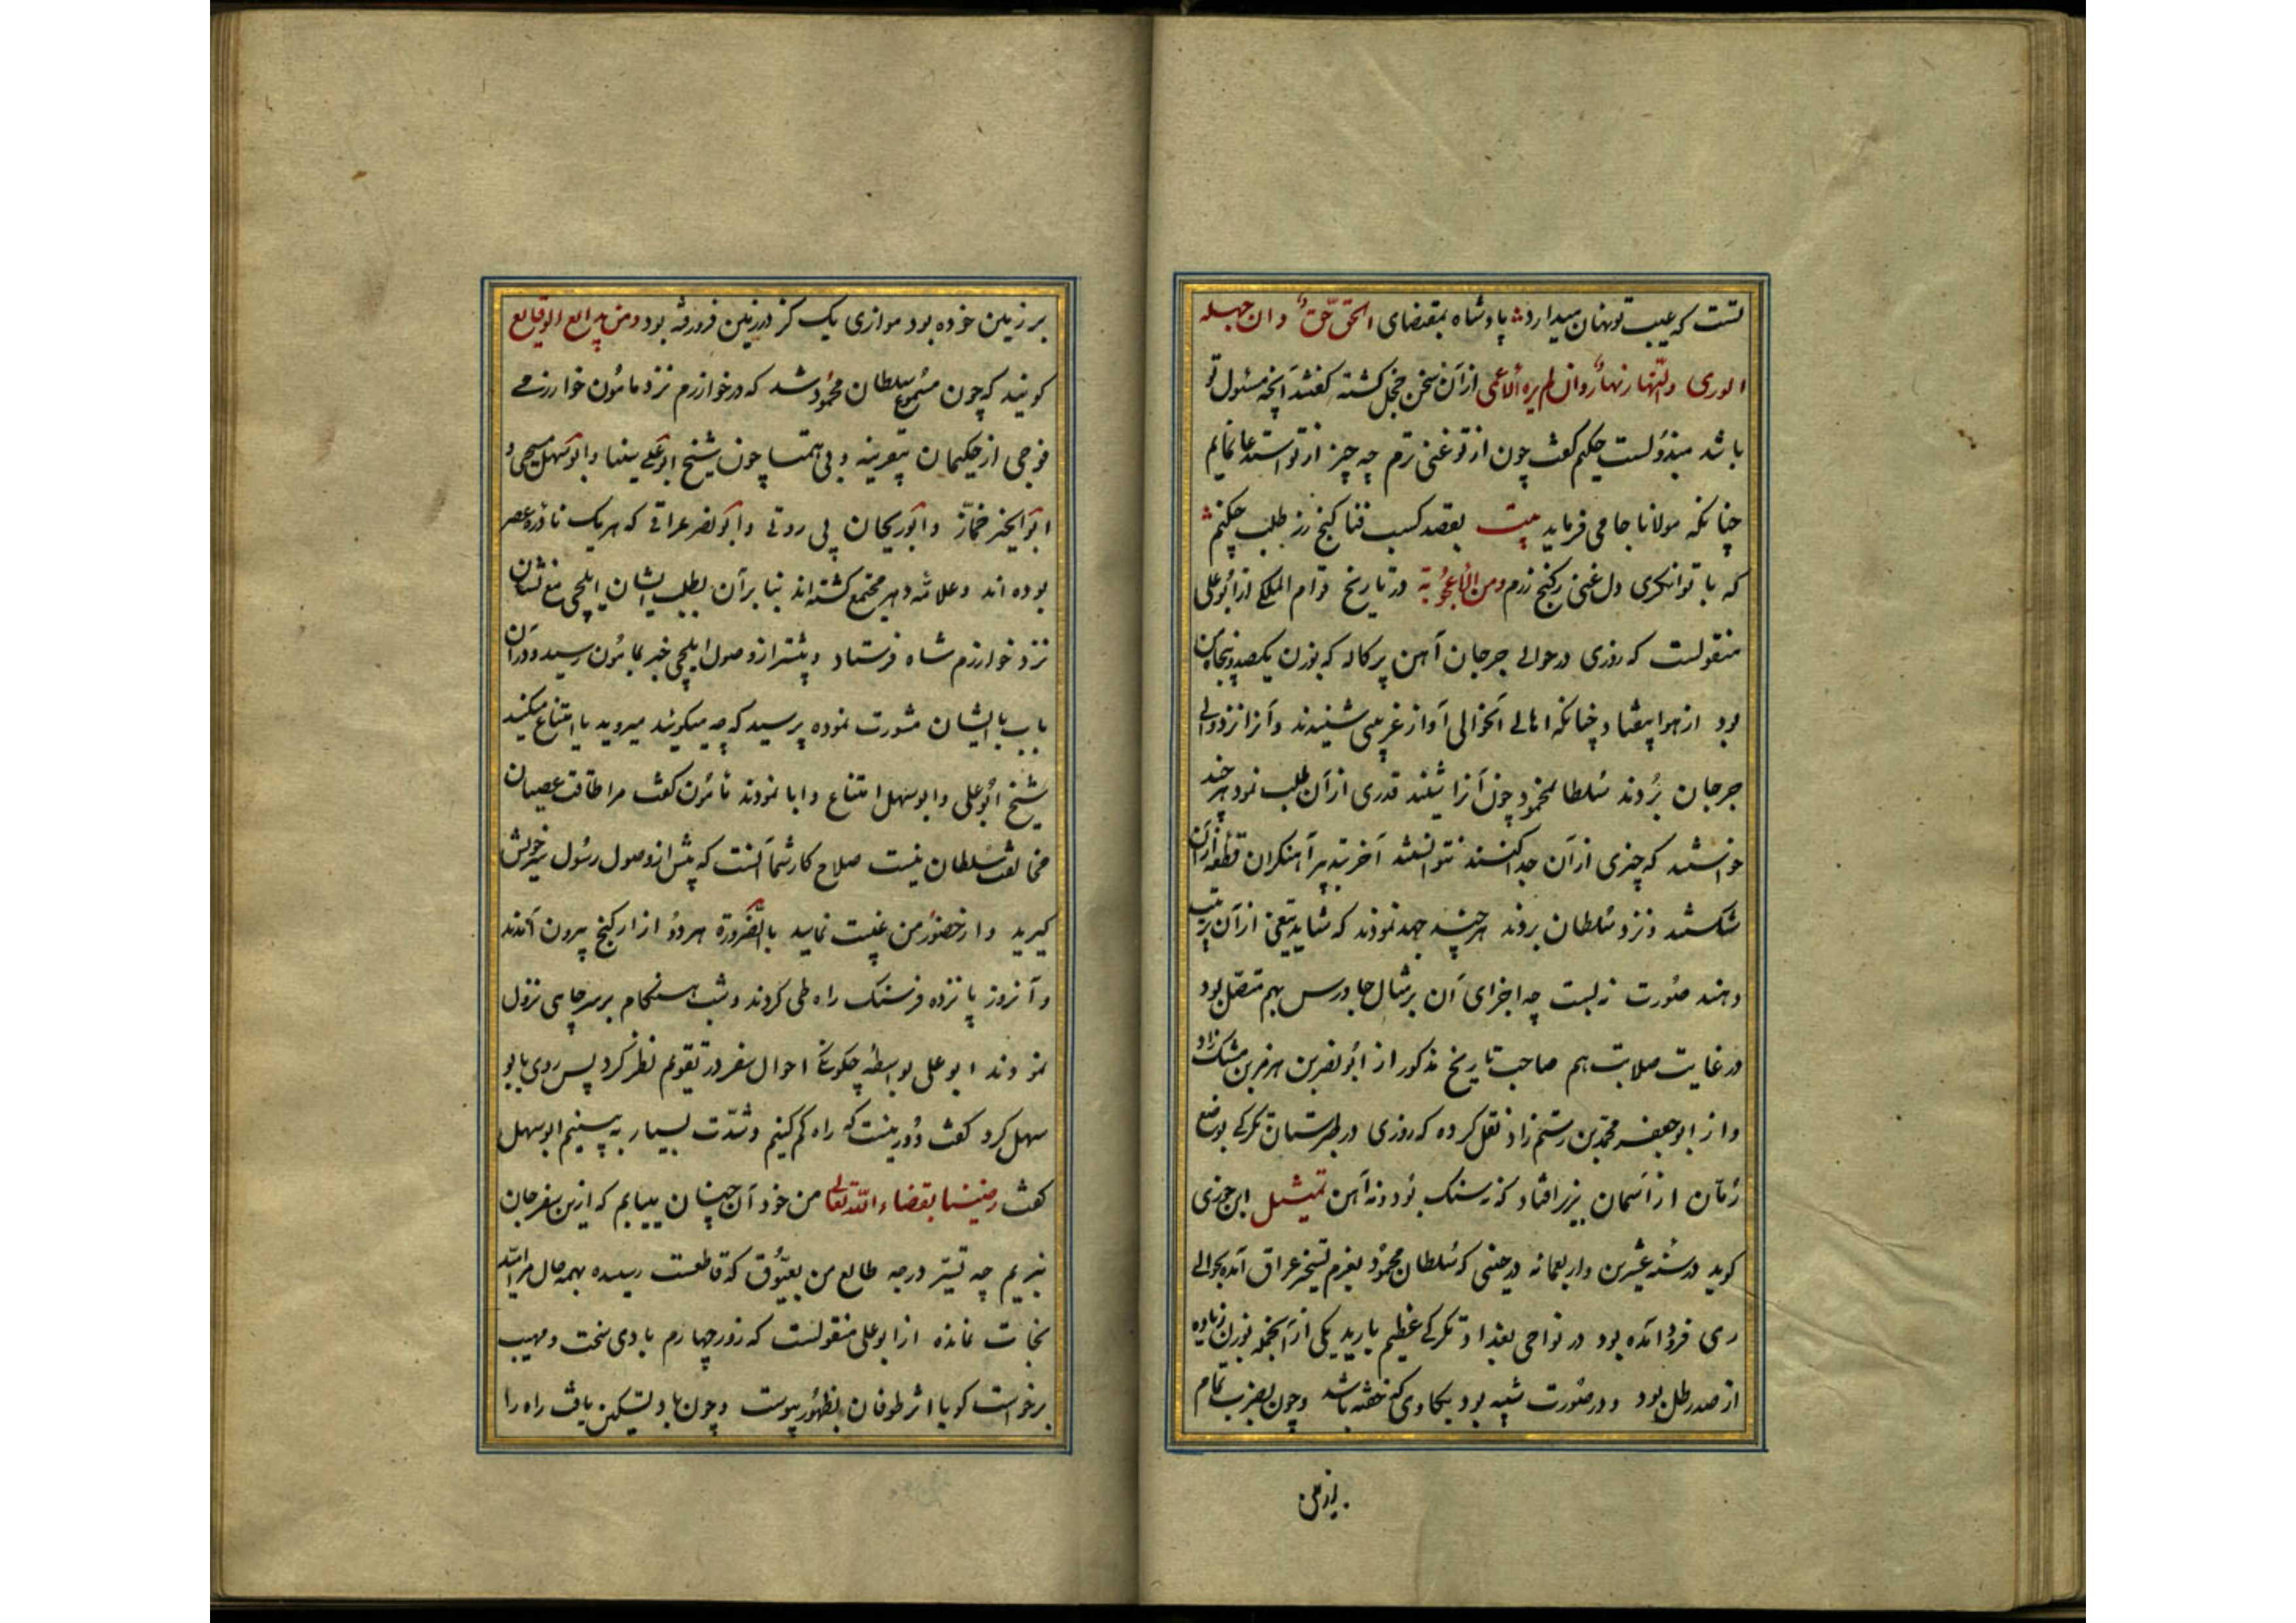 تست که عیب تو نهان میدارد پادشاه بمقتضای الحق حق وان جهله
الوری والنهار نهار وان لم یره الاعمی ازان سخن خجل کشته کفت آنچه مسئول تو
باشد مبذولست حکیم کفت چون از تو غنی ترم چه چیز از تو استدعا نمایم
چنانکه مولانا جامی فرماید بیت بقصد کسب فنا کنج زر طلب چکنم
که با توانکری دل غنی زکنج زرم ومن الاعجوبة در تاریخ قوام الملکی از ابوعلی
منقولست که روزی در حوالی جرجان آهن پرکاله که بوزن یکصد و پنجاه من
بود از هوا بیفتاد چنانکه اهالی آنحوالی آواز غریبی شنیدند و آنرا نزد والی
جرجان بردند سلطان محمود چون آنرا شنید قدری از آن طلب نمود هرچند
خواستند که چیزی از آن جدا کنند نتوانستند آخر بتدبیر آهنکران قطعه ازان
شکستند و نزد سلطان بردند هرچند جهد نمودند که شاید تیغی از آن ترتیب
دهند صورت نبست چه اجزای آن بر مثال جاورس بهم متصل بود
در غایت صلابت هم صاحب تاریخ مذکور از ابونصر بن هرمز بن مشک زاد
و از ابوجعفر محمد بن رستم زاد نقل کرده که روزی در طبرستان تکرکی بوضع
رمان از آسمان بزیر افتاد که نه سنک بود و نه آهن تمثیل ابن جوزی
کوید در سنه عشرین و اربعمائه در حینی که سلطان محمود بعزم تسخیر عراق آمده بحوالی
ری فرود آمده بود در نواحی بغداد تکرکی عظیم بارید یکی از آنجمله بوزن زیاده
از صد رطل بود و در صورت شبیه بود بکاوی که خفته باشد و چون بضرب تمام
بر زمین
بر زمین خورده بود موازی یک کز در زمین فرو رفته بود ومن بدایع الوقایع
کویند که چون مسموع سلطان محمود شد که در خوارزم نزد مامون خوارزمی
فوجی از حکیمان بیقرینه و بی همتا چون شیخ ابوعلی سینا و ابوسهل مسیحی و
ابوالخیر خمار و ابوریحان بیرونی و ابونصر عراقی که هر یک نادره عصر
بوده اند و علامه دهر مجتمع کشته اند بنابر آن بطلب ایشان ایلچی مع نشان
نزد خوارزم شاه فرستاد و پیشتر از وصول ایلچی خبر بمامون رسید و در آن
باب با ایشان مشورت نموده پرسید که چه میکوئید میروید یا امتناع میکنید
شیخ ابوعلی و ابوسهل امتناع و ابا نمودند مامون کفت مرا طاقت عصیان
مخالفت سلطان نیست صلاح کار شما آنست که پیش از وصول رسول سر خویش
کیرید و از حضور من غیبت نمایید بالضرورة هر دو از ارکنج بیرون آمدند
و آنروز پانزده فرسنک راه طی کردند و شب هنکام بر سر چاهی نزول
نمودند ابوعلی بواسطه چکونکی احوال سفر در تقویم نظر کرد پس روی بابو
سهل کرد کفت دور نیست که راه کم کنیم و شدت بسیار به بینیم ابوسهل
کفت رضینا بقضاء الله تعالی من خود آن چنان مییابم که ازین سفر جان
نبریم چه تسیر درجه طالع من بعیوق که قاطعست رسیده بهمه حال مرا امید
نجات نمانده از ابوعلی منقولست که روز چهارم بادی سخت و مهیب
برخواست کویا اثر طوفان بظهور پیوست و چون باد تسکین یافت راه را